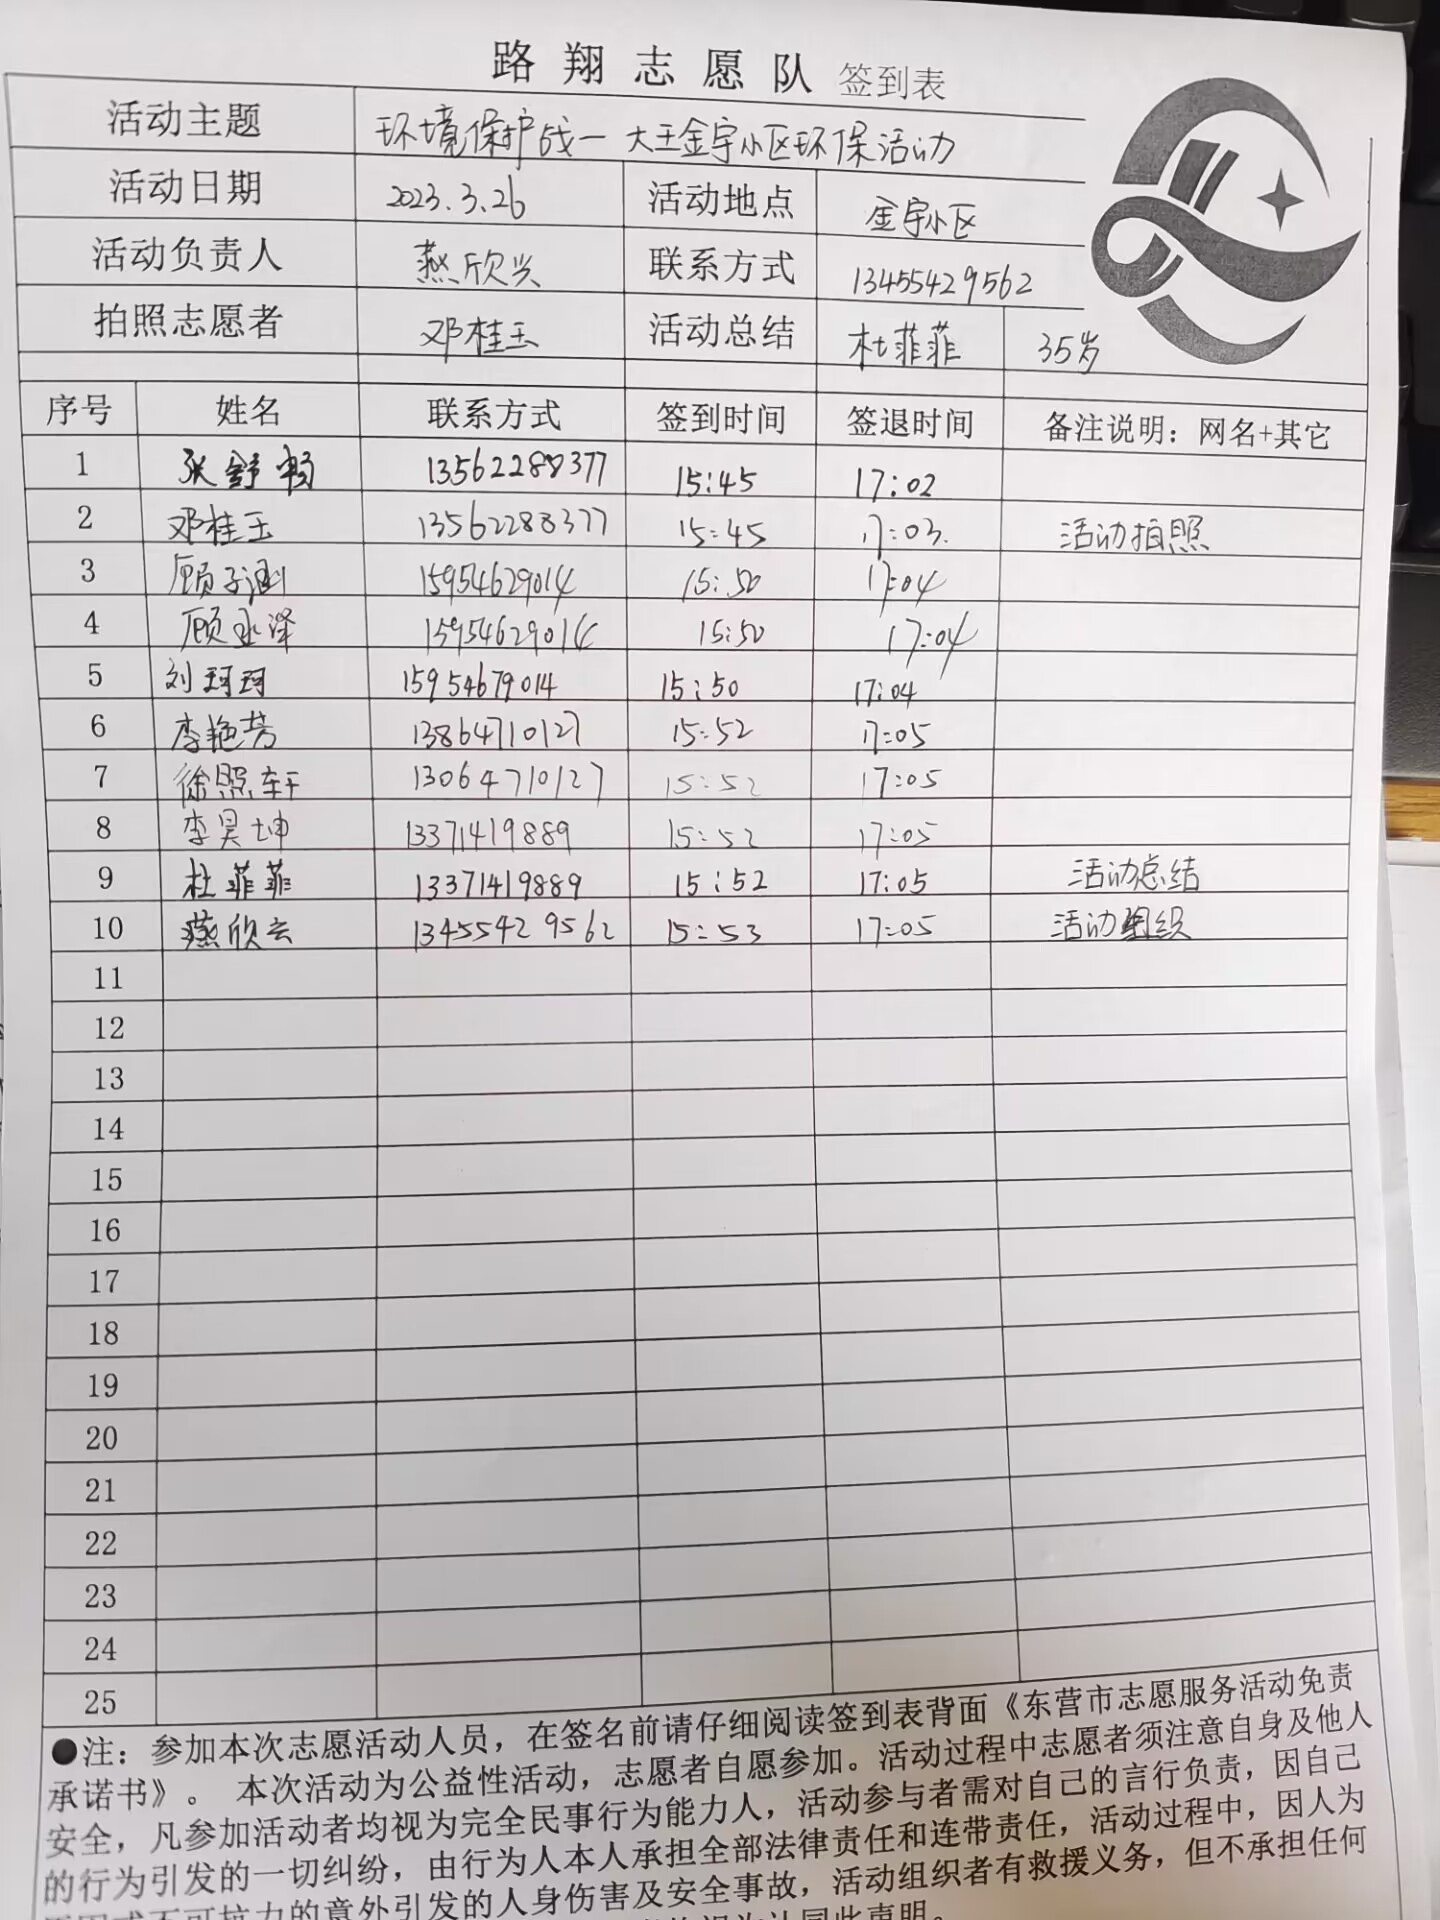 路翔志愿队 签到表
活动主题 环境保护战一 大王金宇小区环保活动
活动日期 2023.3.26 活动地点 金宇小区
活动负责人 燕欣兴 联系方式 13455429562
拍照志愿者 邓桂玉 活动总结 杜菲菲 35岁
序号 姓名 联系方式 签到时间 签退时间 备注说明：网名+其它
1 张舒畅 13562288377 15:45 17:02
2 邓桂玉 13562288377 15:45 17:03. 活动拍照
3 顾子涵 15954629014 15:50 17:04
4 顾亚泽 15954629014 15:50 17:04
5 刘珂珂 15954679014 15:50 17:04
6 李艳芳 13864710127 15:52 17:05
7 徐照轩 13064710127 15:52 17:05
8 李昊坤 13371419889 15:52 17:05
9 杜菲菲 13371419889 15:52 17:05 活动总结
10 燕欣云 13455429562 15:53 17:05 活动组织
11
12
13
14
15
16
17
18
19
20
21
22
23
24
25
●注：参加本次志愿活动人员，在签名前请仔细阅读签到表背面《东营市志愿服务活动免责
承诺书》。 本次活动为公益性活动，志愿者自愿参加。活动过程中志愿者须注意自身及他人
安全，凡参加活动者均视为完全民事行为能力人，活动参与者需对自己的言行负责，因自己
的行为引发的一切纠纷，由行为人本人承担全部法律责任和连带责任，活动过程中，因人为
不可抗力的意外引发的人身伤害及安全事故，活动组织者有救援义务，但不承担任何
视为认同此声明。